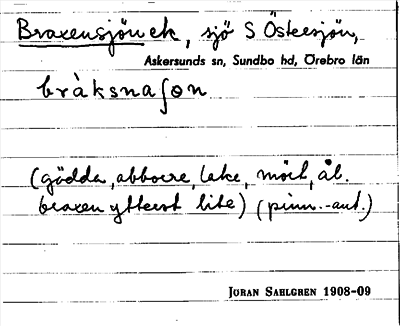 Braxensjön ek, sjö S Östersjön,
Askersunds sn, Sundbo hd, Örebro län
bràksnaʃөn
(gödda, abborre, lake, mört, ål.
braxen ytterst lite) (pinn.-ant.)
JÖRAN SAHLGREN 1908-09